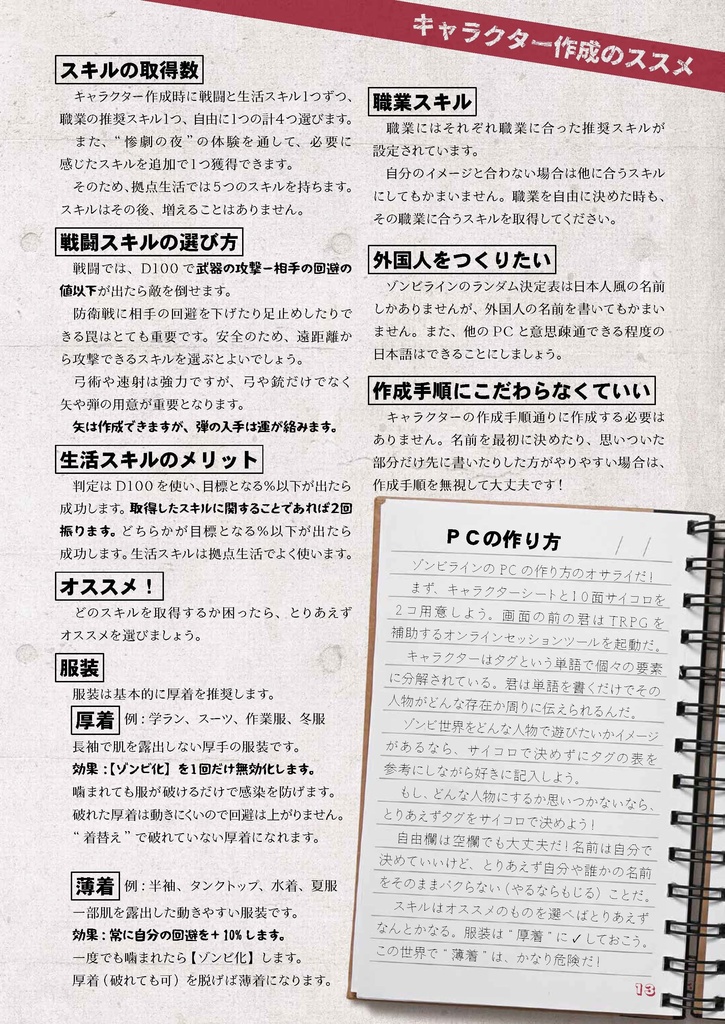 キャラクター作成のススメ
スキルの取得数
キャラクター作成時に戦闘と生活スキル1つずつ、
職業の推奨スキル1つ、自由に1つの計4つ選びます。
また、“惨劇の夜”の体験を通して、必要に
感じたスキルを追加で1つ獲得できます。
そのため、拠点生活では5つのスキルを持ちます。
スキルはその後、増えることはありません。
戦闘スキルの選び方
戦闘では、D100で武器の攻撃－相手の回避の
値以下が出たら敵を倒せます。
防衛戦に相手の回避を下げたり足止めしたりで
きる罠はとても重要です。安全のため、遠距離か
ら攻撃できるスキルを選ぶとよいでしょう。
弓術や速射は強力ですが、弓や銃だけでなく
矢や弾の用意が重要となります。
矢は作成できますが、弾の入手は運が絡みます。
生活スキルのメリット
判定はD100を使い、目標となる%以下が出たら
成功します。取得したスキルに関することであれば2回
振ります。どちらかが目標となる%以下が出たら
成功します。生活スキルは拠点生活でよく使います。
オススメ！
どのスキルを取得するか困ったら、とりあえず
オススメを選びましょう。
服装
服装は基本的に厚着を推奨します。
厚着 例：学ラン、スーツ、作業服、冬服
長袖で肌を露出しない厚手の服装です。
効果：【ゾンビ化】を1回だけ無効化します。
噛まれても服が破けるだけで感染を防げます。
破れた厚着は動きにくいので回避は上がりません。
“着替え”で破れていない厚着になれます。
薄着 例：半袖、タンクトップ、水着、夏服
一部肌を露出した動きやすい服装です。
効果：常に自分の回避を＋10%します。
一度でも噛まれたら【ゾンビ化】します。
厚着（破れても可）を脱げば薄着になります。
職業スキル
職業にはそれぞれ職業に合った推奨スキルが
設定されています。
自分のイメージと合わない場合は他に合うスキル
にしてもかまいません。職業を自由に決めた時も、
その職業に合うスキルを取得してください。
外国人をつくりたい
ゾンビラインのランダム決定表は日本人風の名前
しかありませんが、外国人の名前を書いてもかまい
ません。また、他のPCと意思疎通できる程度の
日本語はできることにしましょう。
作成手順にこだわらなくていい
キャラクターの作成手順通りに作成する必要は
ありません。名前を最初に決めたり、思いついた
部分だけ先に書いたりした方がやりやすい場合は、
作成手順を無視して大丈夫です！
PCの作り方 / /
ゾンビラインのPCの作り方のオサライだ！
まず、キャラクターシートと10面サイコロを
2コ用意しよう。画面の前の君はTRPGを
補助するオンラインセッションツールを起動だ。
キャラクターはタグという単語で個々の要素
に分解されている。君は単語を書くだけでその
人物がどんな存在か周りに伝えられるんだ。
ゾンビ世界をどんな人物で遊びたいかイメージ
があるなら、サイコロで決めずにタグの表を
参考にしながら好きに記入しよう。
もし、どんな人物にするか思いつかないなら、
とりあえずタグをサイコロで決めよう！
自由欄は空欄でも大丈夫だ！名前は自分で
決めていいけど、とりあえず自分や誰かの名前
をそのままパクらない（やるならもじる）ことだ。
スキルはオススメのものを選べばとりあえず
なんとかなる。服装は“厚着”に✓しておこう。
この世界で“薄着”は、かなり危険だ！
13